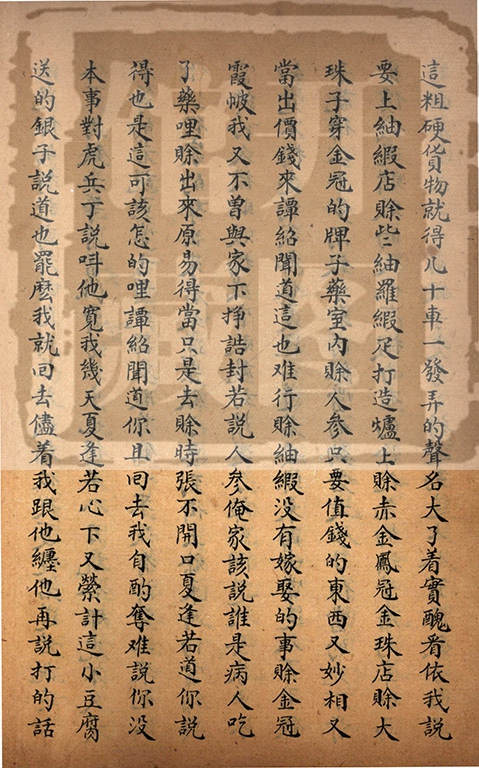 這粗硬貨物就得几十車一發弄的聲名大了着實醜看依我說
要上紬緞店賒些紬羅緞疋打造爐上賒赤金鳳冠金珠店賒大
珠子穿金冠的牌子藥室內賒人參只要值錢的東西又妙相又
當出價錢來譚紹聞道這也难行賒紬緞没有嫁娶的事賒金冠
霞帔我又不曽與家下挣誥封若説人參俺家該説誰是病人吃
了藥哩賒出來原易得當只是去賒時張不開口夏逢若道你説
得也是這可該怎的哩譚紹聞道你且回去我自酌奪难説你没
本事對虎兵丁説呌他寬我幾天夏逢若心下又縈計這小豆腐
送的銀子説道也罷麽我就回去儘着我跟他纏他再説打的話